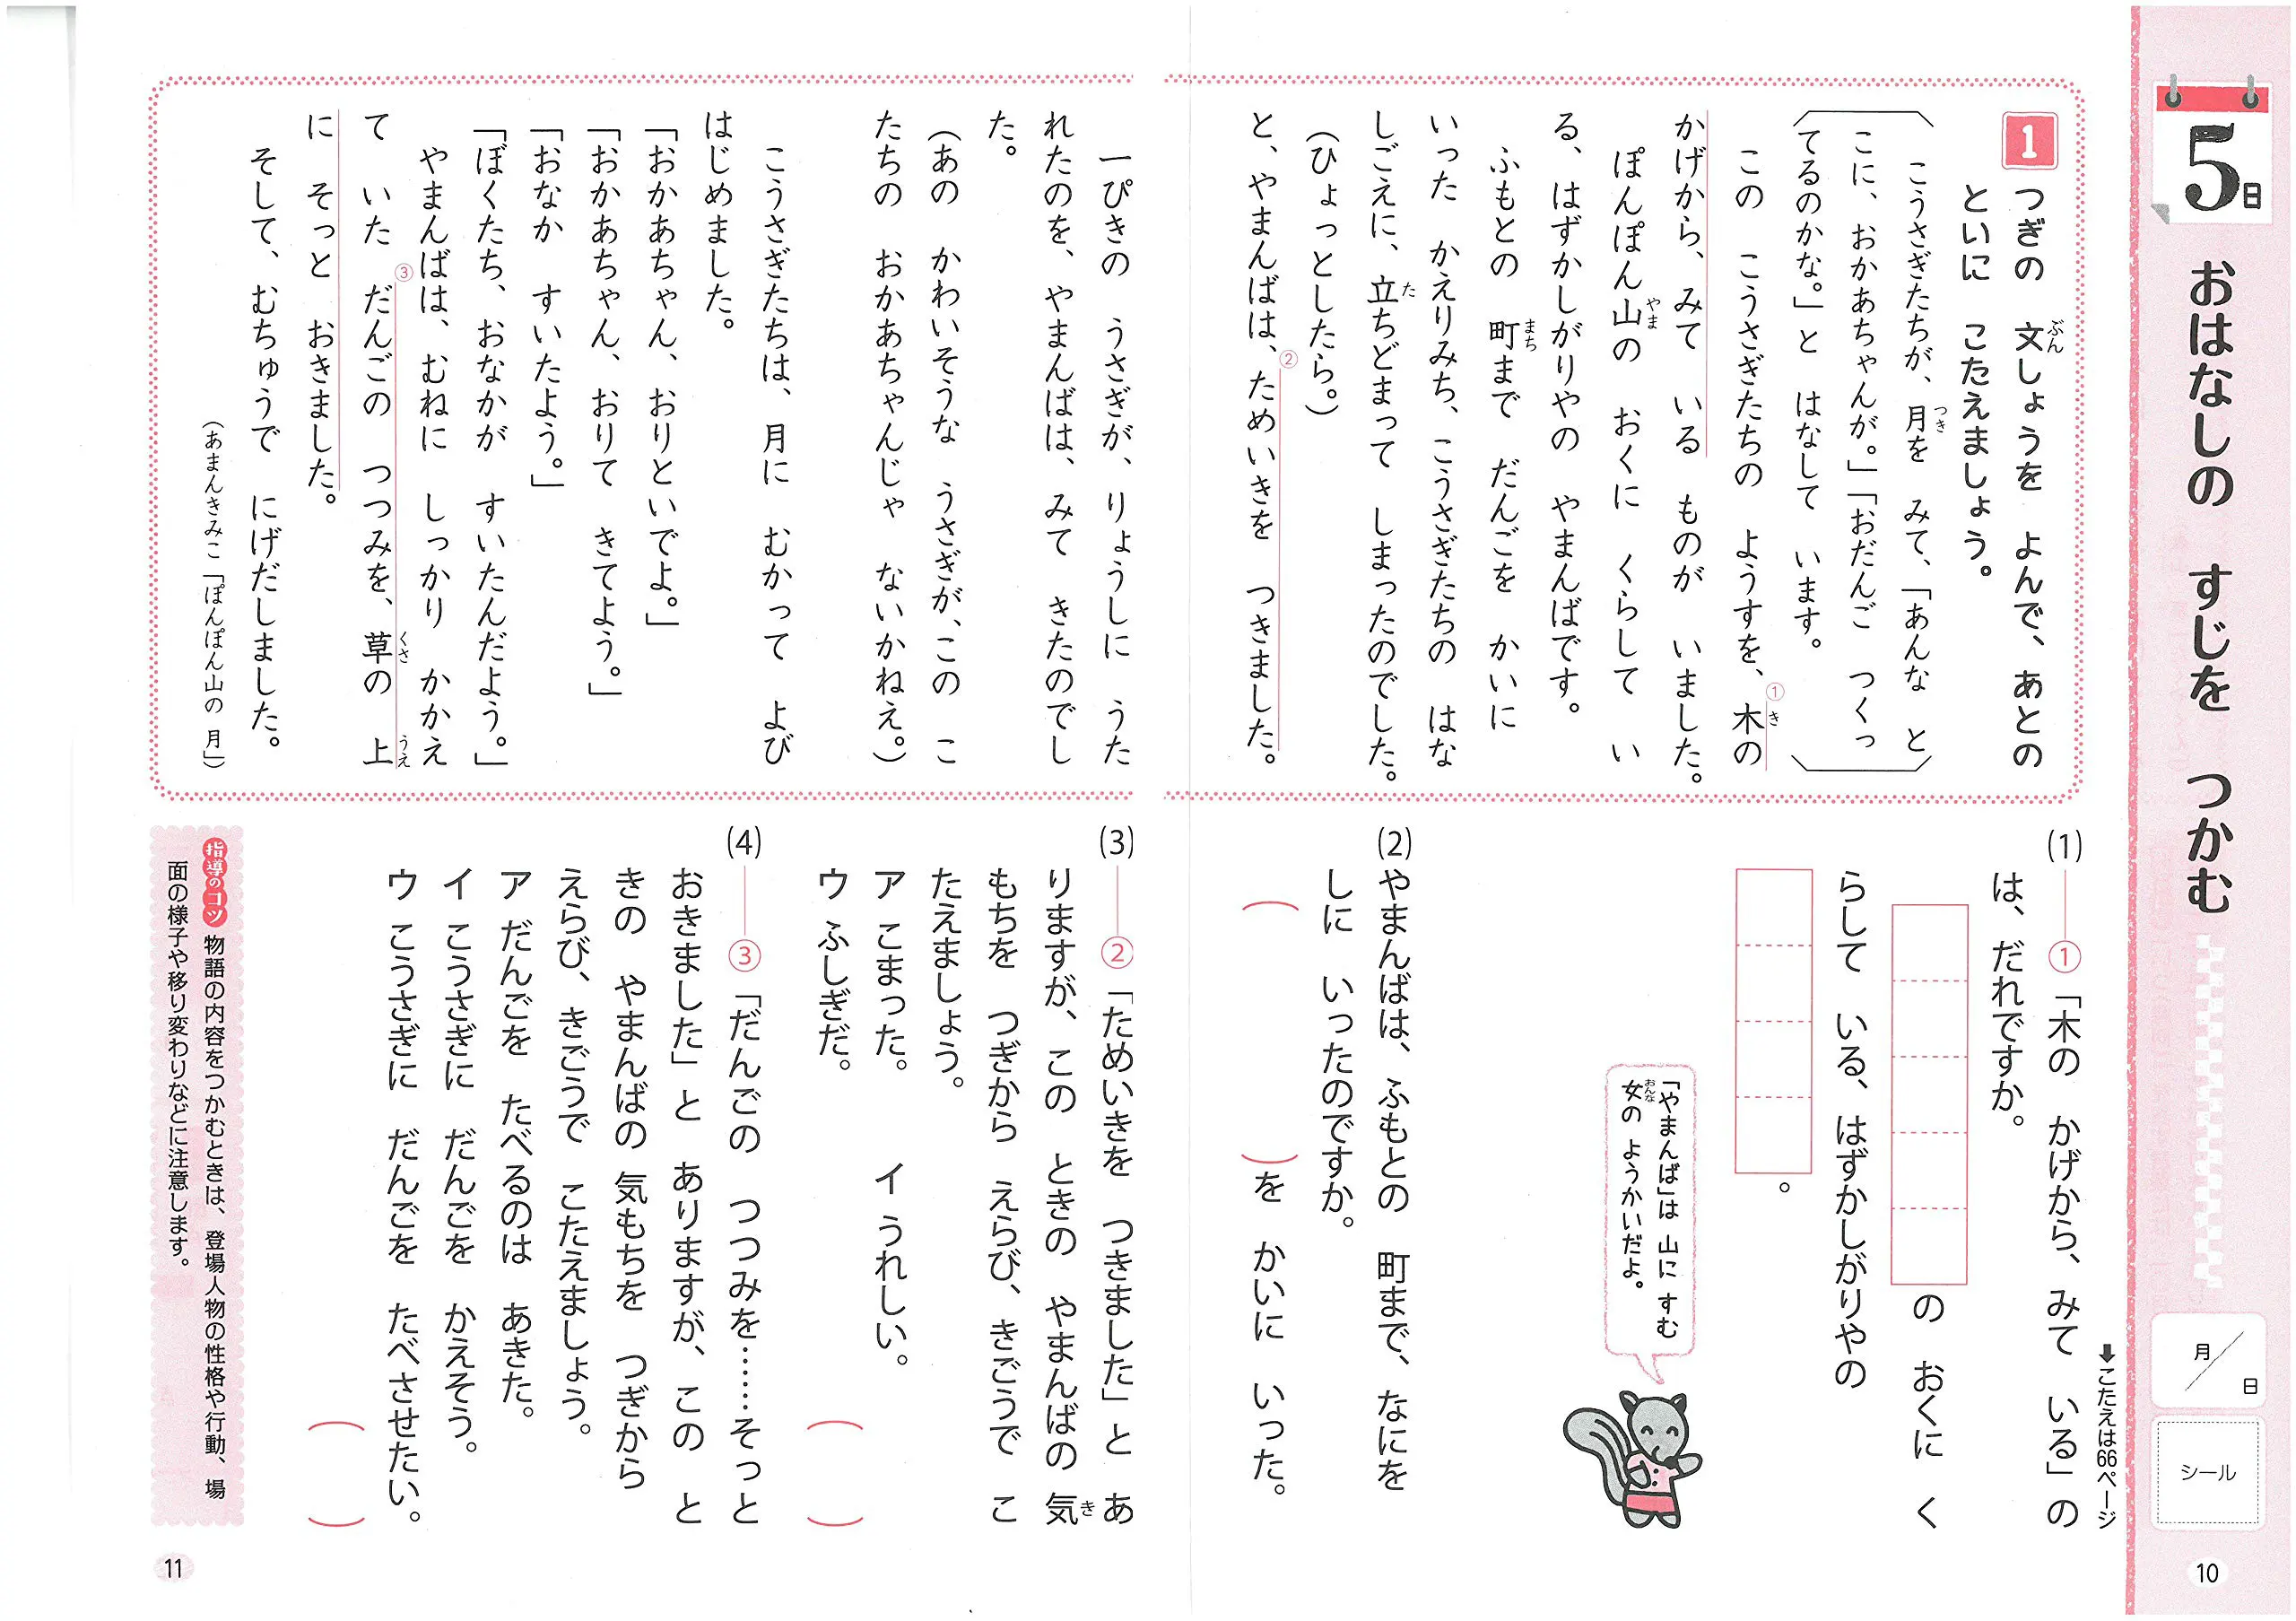 5日
おはなしの すじを つかむ
月/日
シール
10
➡こたえは66ページ
1
つぎの 文しょうを よんで、あとの
といに こたえましょう。
ぶん
こうさぎたちが、月を みて、「あんな と
つき
こに、おかあちゃんが。」「おだんご つくっ
てるのかな。」と はなして います。
この こうさぎたちの ようすを、①木の
き
かげから、みて いる ものが いました。
ぽんぽん山の おくに くらして い
やま
る、はずかしがりやの やまんばです。
ふもとの 町まで だんごを かいに
まち
いった かえりみち、こうさぎたちの はな
しごえに、立ちどまって しまったのでした。
た
(ひょっとしたら。)
と、やまんばは、②ためいきを つきました。
一ぴきの うさぎが、りょうしに うた
れたのを、やまんばは、みて きたのでし
た。
(あの かわいそうな うさぎが、この こ
たちの おかあちゃんじゃ ないかねえ。)
こうさぎたちは、月に むかって よび
はじめました。
「おかあちゃん、おりといでよ。」
「おかあちゃん、おりて きてよう。」
「おなか すいたよう。」
「ぼくたち、おなかが すいたんだよう。」
やまんばは、むねに しっかり かかえ
て いた ③だんごの つつみを、草の 上
くさ
うえ
に そっと おきました。
そして、むちゅうで にげだしました。
(あまんきみこ「ぽんぽん山の 月」)
(1) ①「木の かげから、みて いる」の
は、だれですか。
の おくに く
らして いる、はずかしがりやの
。
「やまんば」は 山に すむ
女の ようかいだよ。
おんな
(2) やまんばは、ふもとの 町まで、なにを
しに いったのですか。
( )を かいに いった。
(3) ②「ためいきを つきました」と あ
りますが、この ときの やまんばの 気
き
もちを つぎから えらび、きごうで こ
たえましょう。
ア こまった。 イ うれしい。
ウ ふしぎだ。
( )
(4) ③「だんごの つつみを……そっと
おきました」と ありますが、この と
きの やまんばの 気もちを つぎから
えらび、きごうで こたえましょう。
ア だんごを たべるのは あきた。
イ こうさぎに だんごを かえそう。
ウ こうさぎに だんごを たべさせたい。
( )
指導のコツ 物語の内容をつかむときは、登場人物の性格や行動、場
面の様子や移り変わりなどに注意します。
11